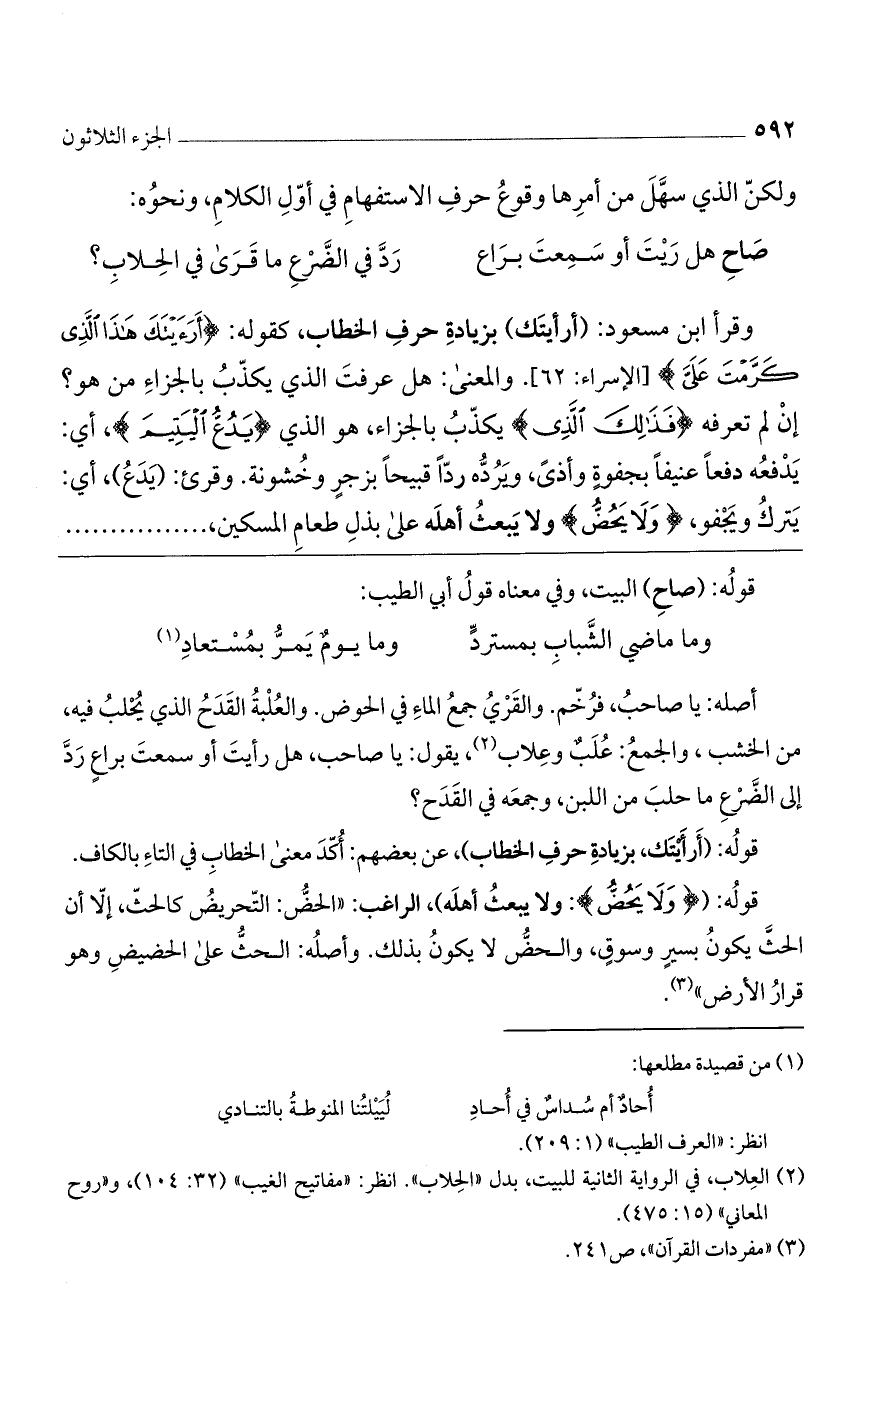 ٥٩٢ ــــــــــــــــــــــــــــــــــــــــــــــ الجزء الثلاثون
ولكنّ الذي سهَّلَ من أمرِها وقوعُ حرفِ الاستفهامِ في أوّلِ الكلامِ، ونحوُه:
صَاحِ هل رَيْتَ أو سَمِعتَ بـرَاعِ رَدَّ في الضَّرْعِ ما قَـرَىٰ في الحِلابِ؟
وقرأ ابن مسعود: (أرأيتَك) بزيادةِ حرفِ الخطاب، كقوله: ﴿أَرَءَيْتَكَ هَٰذَا ٱلَّذِى
كَرَّمْتَ عَلَىَّ﴾ [الإسراء: ٦٢]. والمعنىٰ: هل عرفتَ الذي يكذّبُ بالجزاءِ من هو؟
إنْ لم تعرفه ﴿فَذَٰلِكَ ٱلَّذِى﴾ يكذّبُ بالجزاء، هو الذي ﴿يَدُعُّ ٱلْيَتِيمَ﴾، أي:
يَدْفعُه دفعاً عنيفاً بجفوةٍ وأذىً، ويَرُدُّه ردّاً قبيحاً بزجرٍ وخُشونة. وقرئ: (يَدَعُ)، أي:
يَتركُ ويَجْفو، ﴿وَلَا يَحُضُّ﴾ ولا يَبعثُ أهلَه علىٰ بذلِ طعامِ المسكين،................
قولُه: (صاحِ) البيت، وفي معناه قولُ أبي الطيب:
وما ماضي الشَّبابِ بمستردٍّ وما يـومٌ يَمـرُّ بمُسْـتعادِ(١)
أصله: يا صاحبُ، فرُخّم. والقَرْيُ جمعُ الماءِ في الحوض. والعُلْبةُ القَدَحُ الذي يُحْلبُ فيه،
من الخشب ، والجمعُ: عُلَبٌ وعِلاب(٢)، يقول: يا صاحب، هل رأيتَ أو سمعتَ براعٍ رَدَّ
إلى الضَّرْعِ ما حلبَ من اللبن، وجمعَه في القَدَح؟
قولُه: (أَرأَيْتَك، بزيادةِ حرفِ الخطاب)، عن بعضهم: أُكّدَ معنىٰ الخطابِ في التاءِ بالكاف.
قولُه: (﴿وَلَا يَحُضُّ﴾: ولا يبعثُ أهلَه)، الراغب: «الحضُّ: التّحريضُ كالحثّ، إلّا أن
الحثَّ يكونُ بسيرٍ وسوقٍ، والـحضُّ لا يكونُ بذلك. وأصلُه: الـحثُّ علىٰ الحضيضِ وهو
قرارُ الأرض»(٣).
(١) من قصيدة مطلعها:
أُحادٌ أم سُـداسٌ في أُحـادِ لُيَيْلَتُنا المنوطـةُ بالتنـادي
انظر: «العرف الطيب» (١: ٢٠٩).
(٢) العِلاب، في الرواية الثانية للبيت، بدل «الحِلاب». انظر: «مفاتيح الغيب» (٣٢: ١٠٤)، و«روح
المعاني» (١٥: ٤٧٥).
(٣) «مفردات القرآن»، ص٢٤١.